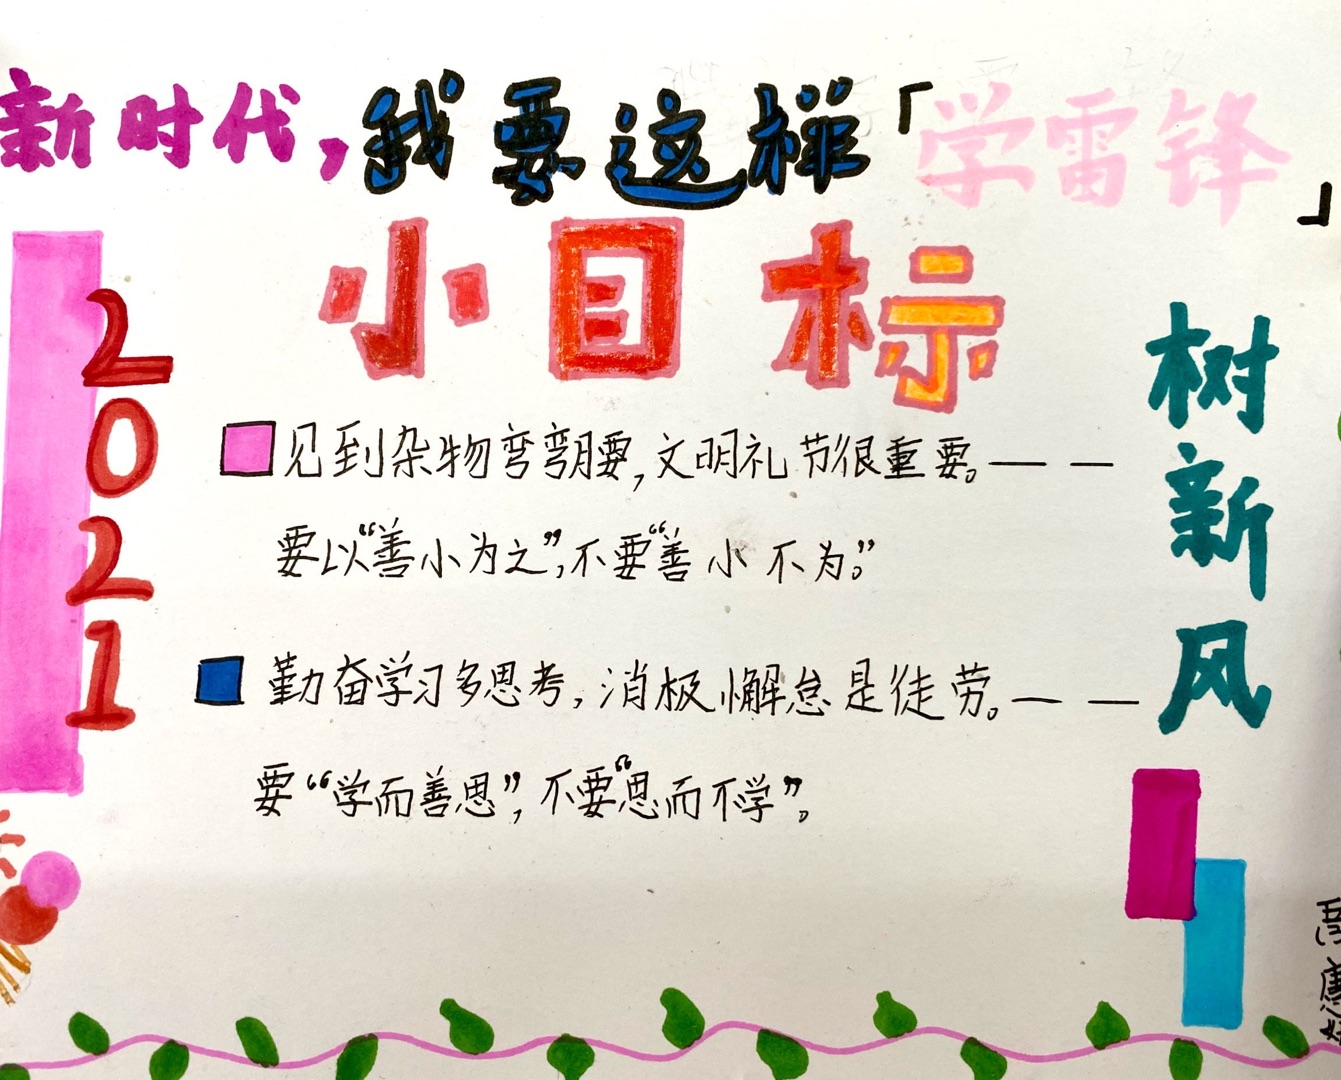 新时代，我要这样「学雷锋」
小目标
2021
树新风
见到杂物弯弯腰，文明礼节很重要。——
要以“善小为之”，不要“善小不为。”
勤奋学习多思考，消极懈怠是徒劳。——
要“学而善思”，不要“思而不学”。